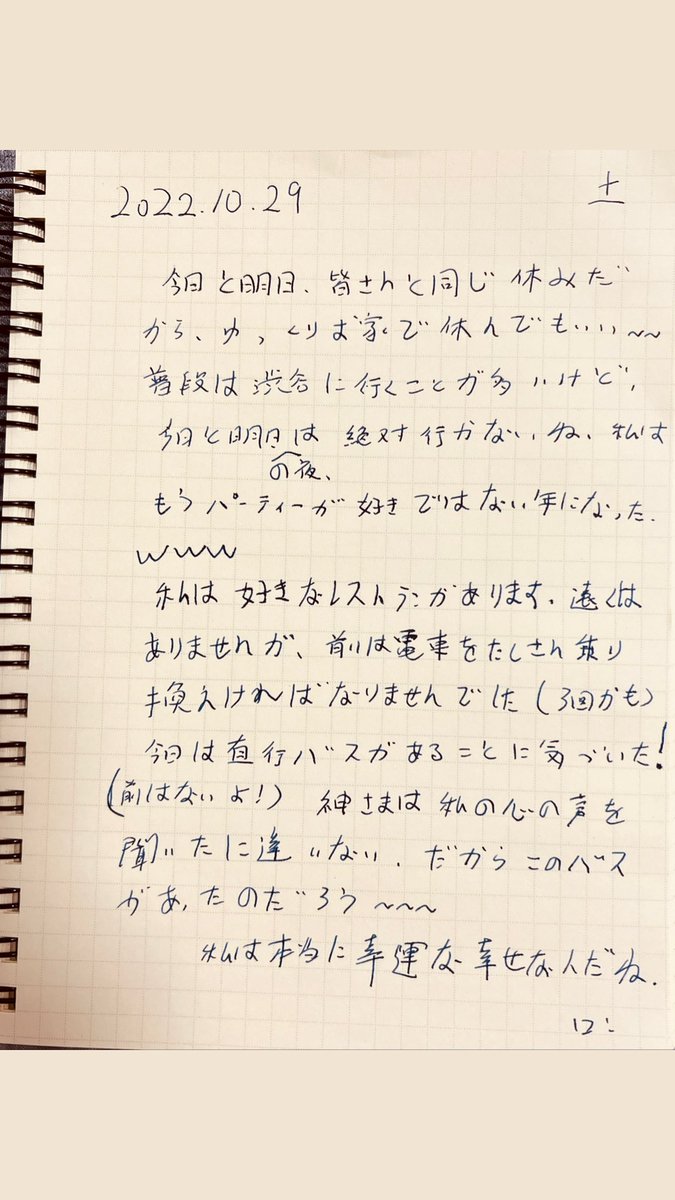 2022.10.29 土
今日と明日、皆さんと同じ休みだ
から、ゆっくりお家で休んでもいい~~
普段は渋谷に行くことが多いけど、
今日と明日は絶対行かない、ね、私は
の夜、
もうパーティーが好きではない年になった.
www
私は好きなレストランがあります。遠くは
ありませんが、前は電車をたくさん乗り
換えければなりませんでした(3回かも)
今日は直行バスがあることに気づいた!
(前はないよ!) 神さまは私の心の声を
聞いたに違いない. だからこのバス
があったのだろう~~~
私は本当に幸運な幸せな人だね.